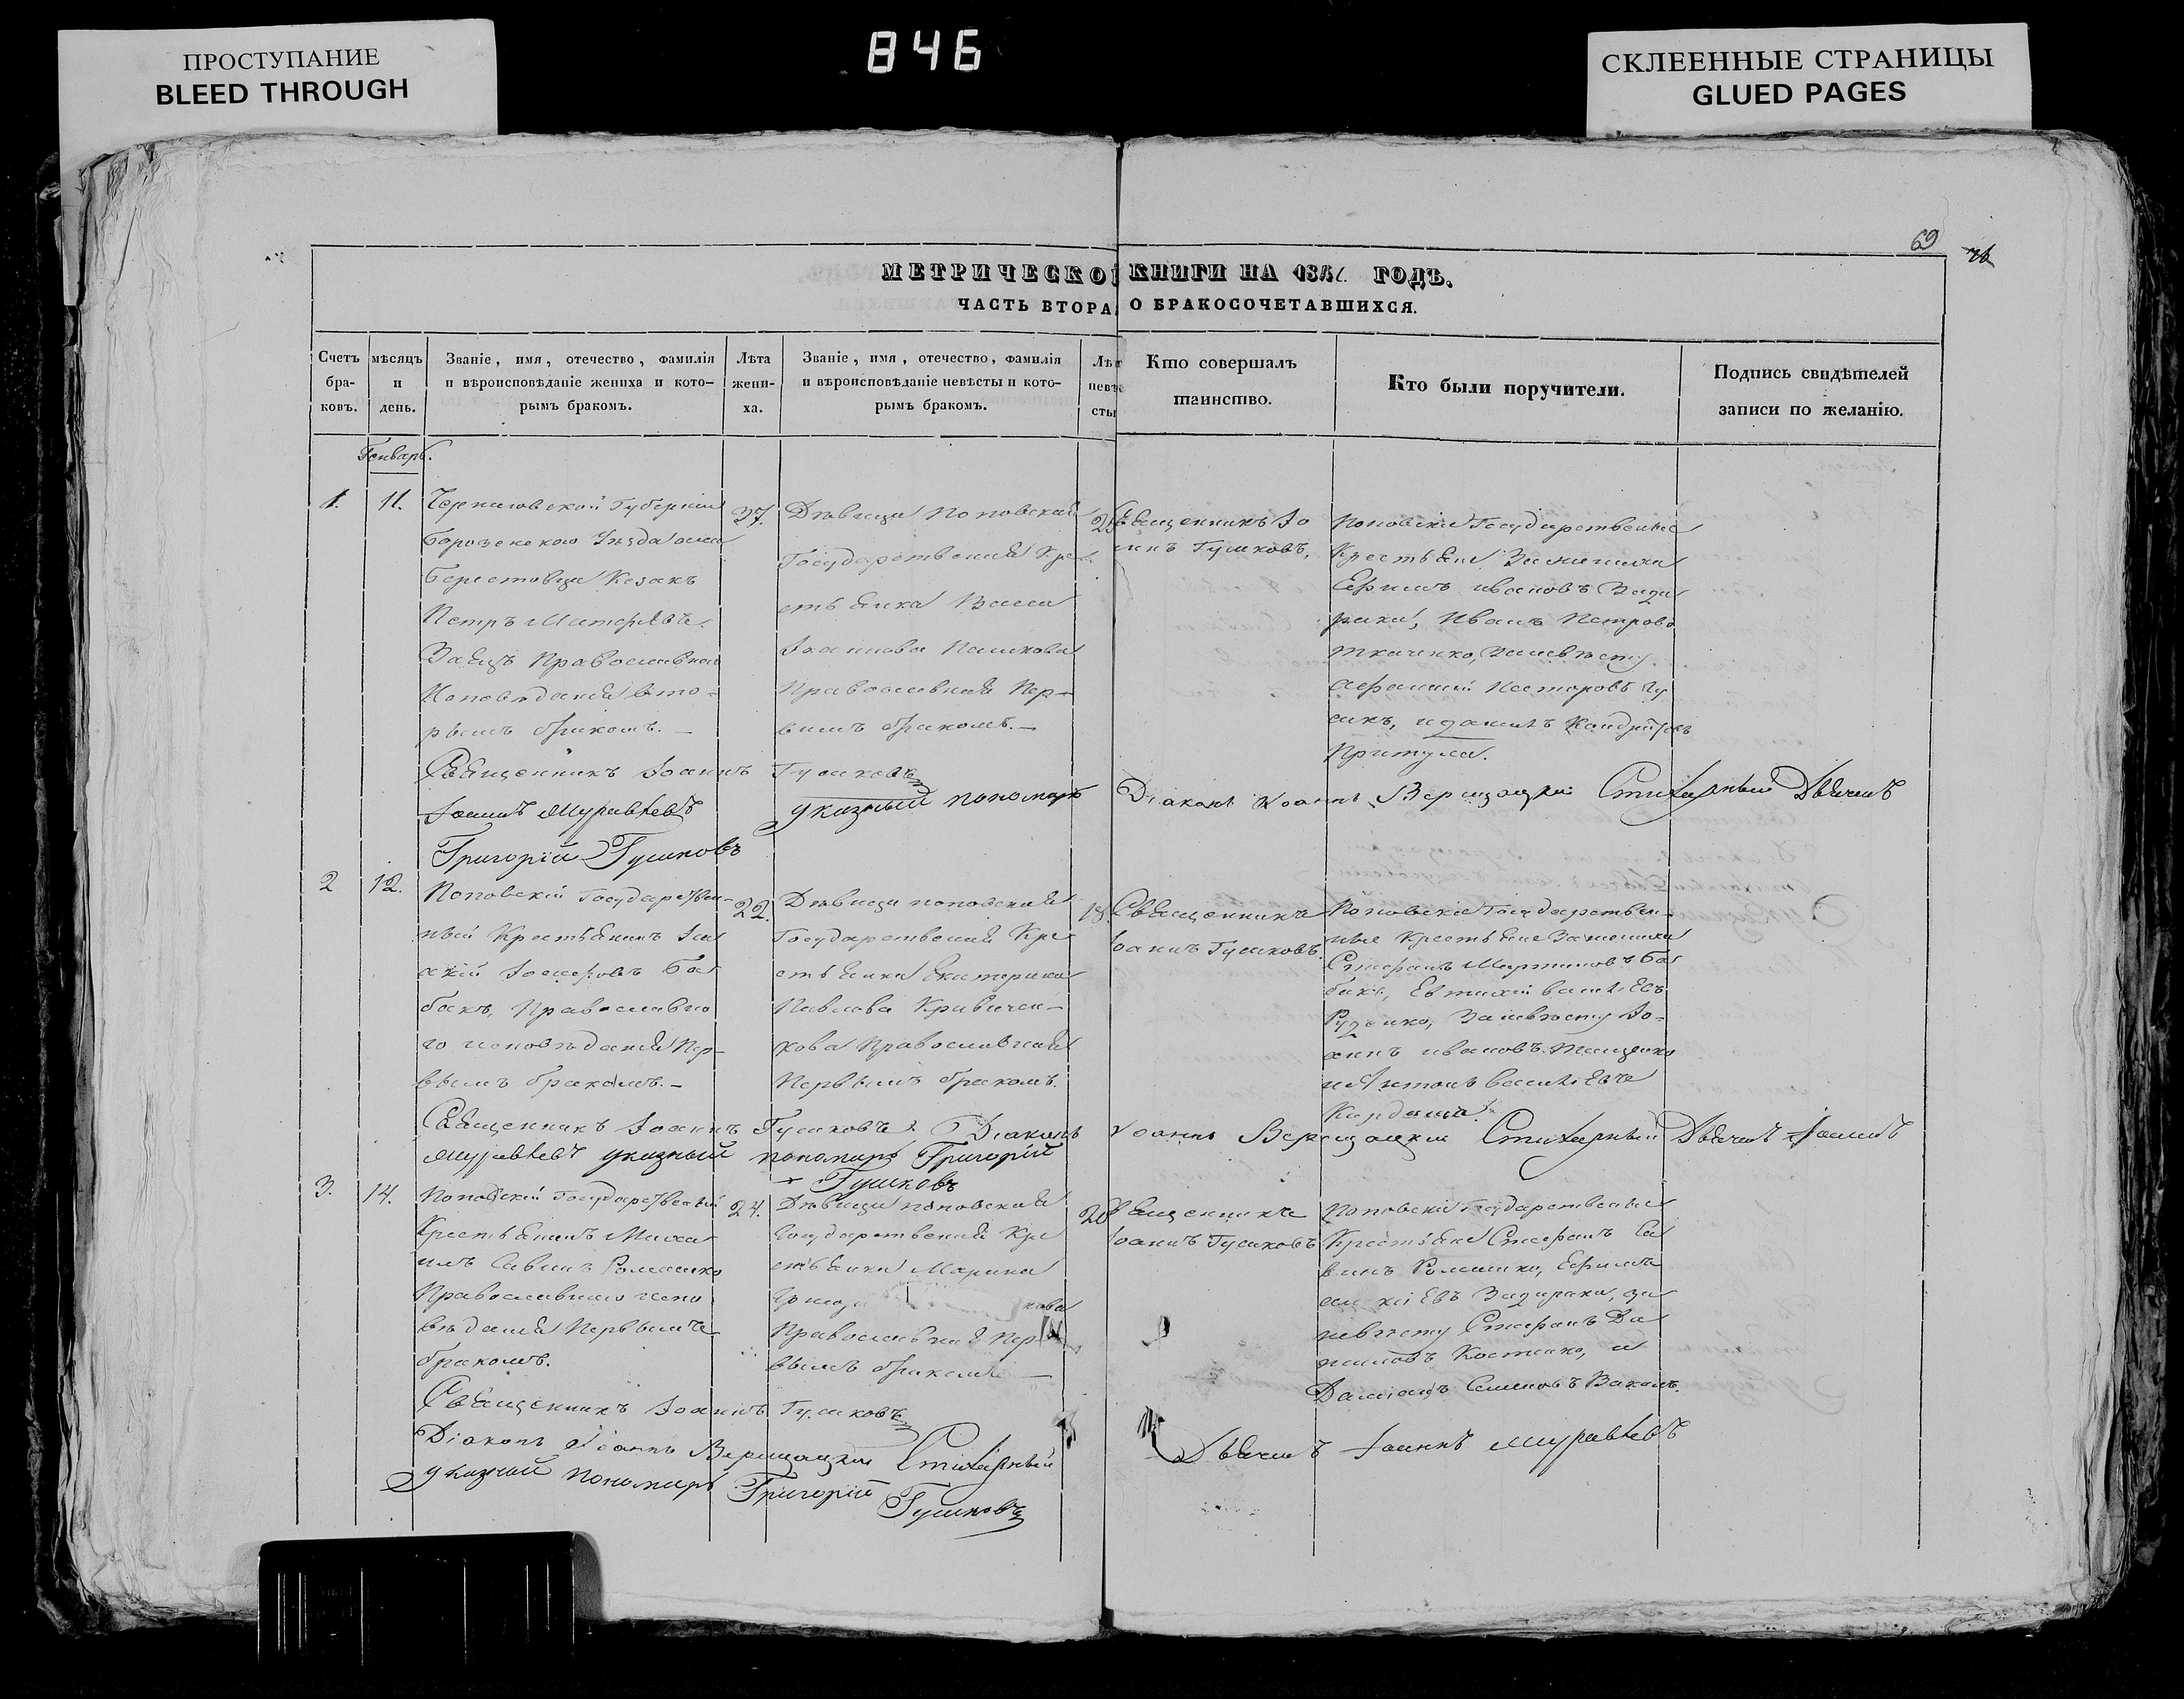 ПРОСТУПАНИЕ
BLEED THROUGH
846
СКЛЕЕННЫЕ СТРАНИЦЫ
GLUED PAGES
69
МЕТРИЧЕСКО КНИГИ НА 184 ГОДЪ.
ЧАСТЬ ВТОРА О БРАКОСОЧЕТАВШИХСЯ.
Счетъ бра-ковъ.
мѣсяцъ и день.
Званіе, имя, отечество, фамилія
и вѣроисповѣданіе жениха и кото-
рымъ бракомъ.
Лѣта жени-ха.
Званіе, имя, отечество, фамилія
и вѣроисповѣданіе невѣсты и кото-
рымъ бракомъ.
Лѣт невѣ сты
Кто совершалъ
таинство.
Кто были поручители.
Подпись свидѣтелей
записи по желанію.
Генварь.
1.
11.
Черниговской Губерніи
Борозенскаго Уѣзда
Берестовца Козакъ
Петръ
Заецъ Православнаго
Исповѣданія вто-
рымъ бракомъ.
37.
Дѣвица Поповская
Государственная Кре-
стьянка
Іоаннова
Православная Пер-
вымъ бракомъ.
Священникъ Іо
аннъ Гушковъ.
Поповскіе Государственные
Крестьяне За жениха
Ефимъ Ивановъ Зади
рака, Иванъ Петровъ
Ткаченко, За невѣсту
Несторовъ
Притула.
Священникъ Іоаннъ Гушковъ
Діаконъ Іоаннъ Верещацкій Стихарный Дьячекъ
Іоаннъ Муравьевъ указный пономарь
Григорій Гушковъ
2
12.
Поповскій Государствен-
ный Крестьянинъ
акій Іосифовъ Ба
бакъ, Православна
го исповѣданія Пер-
вымъ бракомъ.
22.
Дѣвица Поповская
Государственная Кре
стьянка Екатерина
Павлова Кравчен-
кова Православная
Первымъ бракомъ.
18
Священникъ
Іоаннъ Гушковъ.
Поповскіе Государствен-
ные Крестьяне За жениха
Стефанъ Мартиновъ Ба
бакъ, Евтихій Васильевъ
Руденко, За невѣсту Іо-
аннъ Ивановъ
и Антонъ Васильевъ
Кардаша.
Священникъ Іоаннъ Гушковъ Діаконъ Іоаннъ Верещацкій Стихарный Дьячекъ Іоаннъ
Муравьевъ указный пономарь Григорій
Гушковъ
3.
14.
Поповскій Государственный
Крестьянинъ Миха
илъ Савинъ Ромашко
Православнаго испо
вѣданія Первымъ
бракомъ.
24.
Дѣвица Поповская
Государственная Кре
стьянка Марина
кова
Православная Пер
вымъ бракомъ
20
Священникъ
Іоаннъ Гушковъ
Поповскіе Государственные
Крестьяне Стефанъ Са
винъ Ромашко, Ефимъ
Задирака, за
невѣсту Стефанъ Да
ниловъ Костенко, и
Даміанъ Семеновъ
Священникъ Іоаннъ Гушковъ
Діаконъ Іоаннъ Верещацкій Стихарный Дьячекъ Іоаннъ Муравьевъ
указный пономарь Григорій
Гушковъ